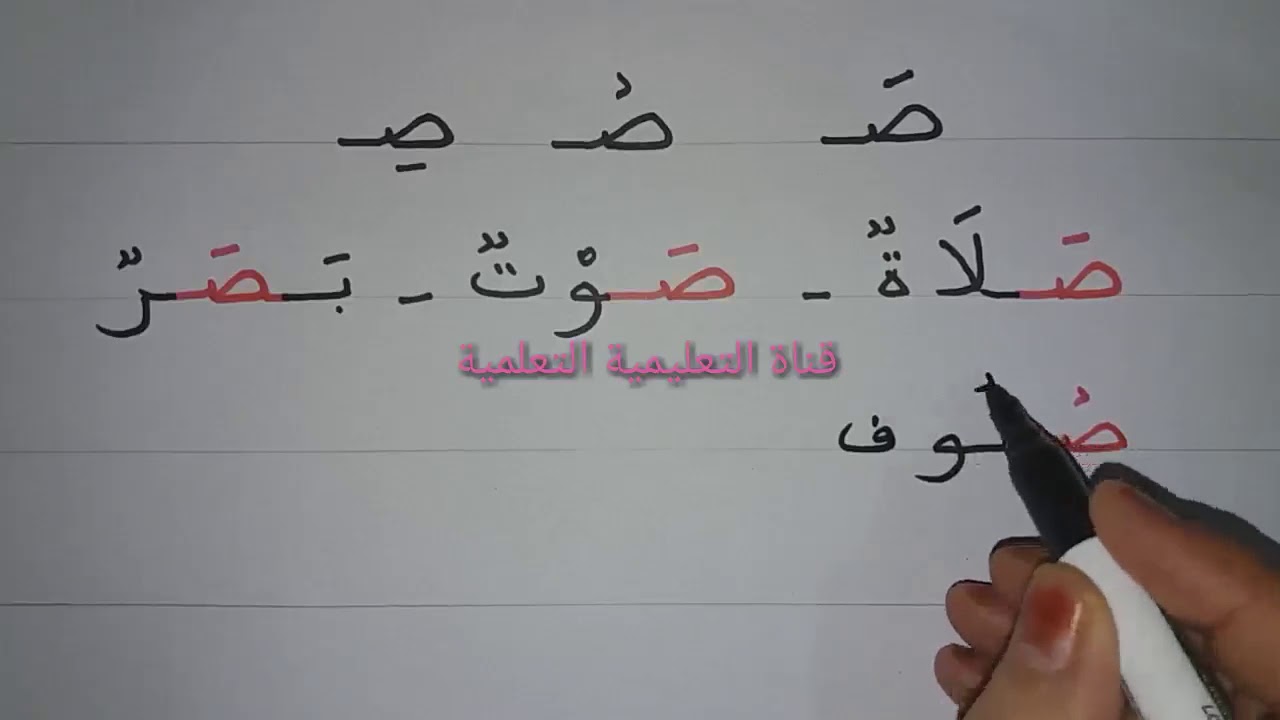 صَـ صُـ صِـ
صَلَاةٌ - صَوْتٌ - بَصَرٌ
قناة التعليمية التعلمية